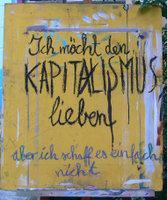 Ich möcht den
KAPITALISMUS
lieben
aber ich schaff es einfach
nicht